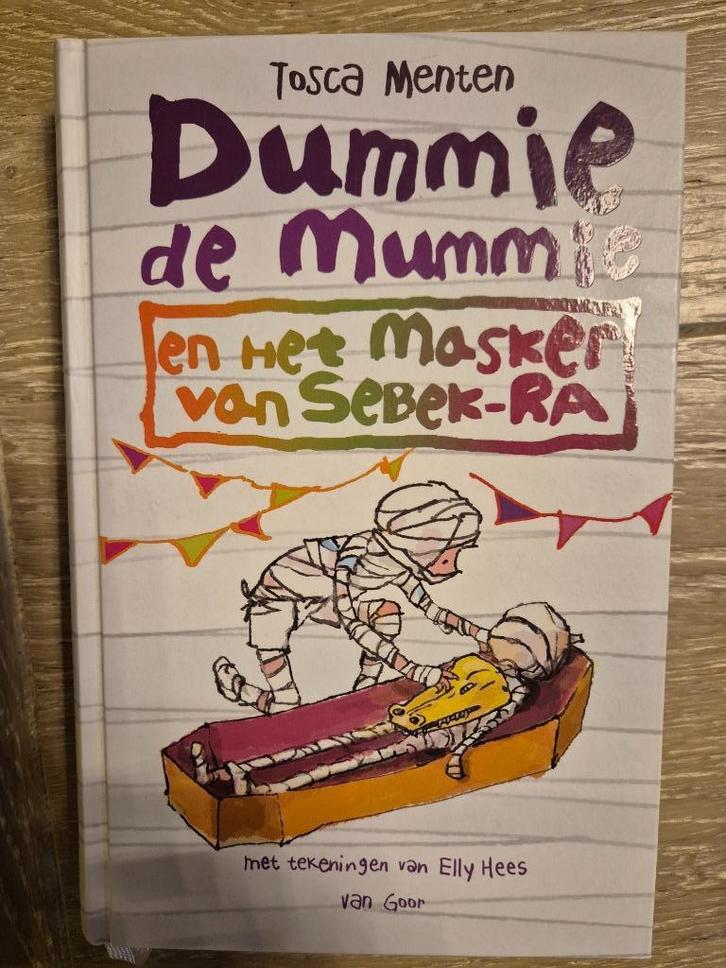 Tosca Menten
Dummie
de Mummie
en Het Masker
van SeBeK-RA
met tekeningen van Elly Hees
van Goor